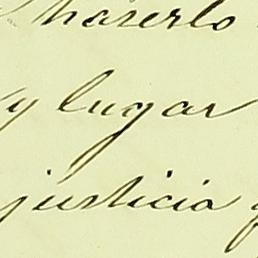 haserlo
y lugar
justicia